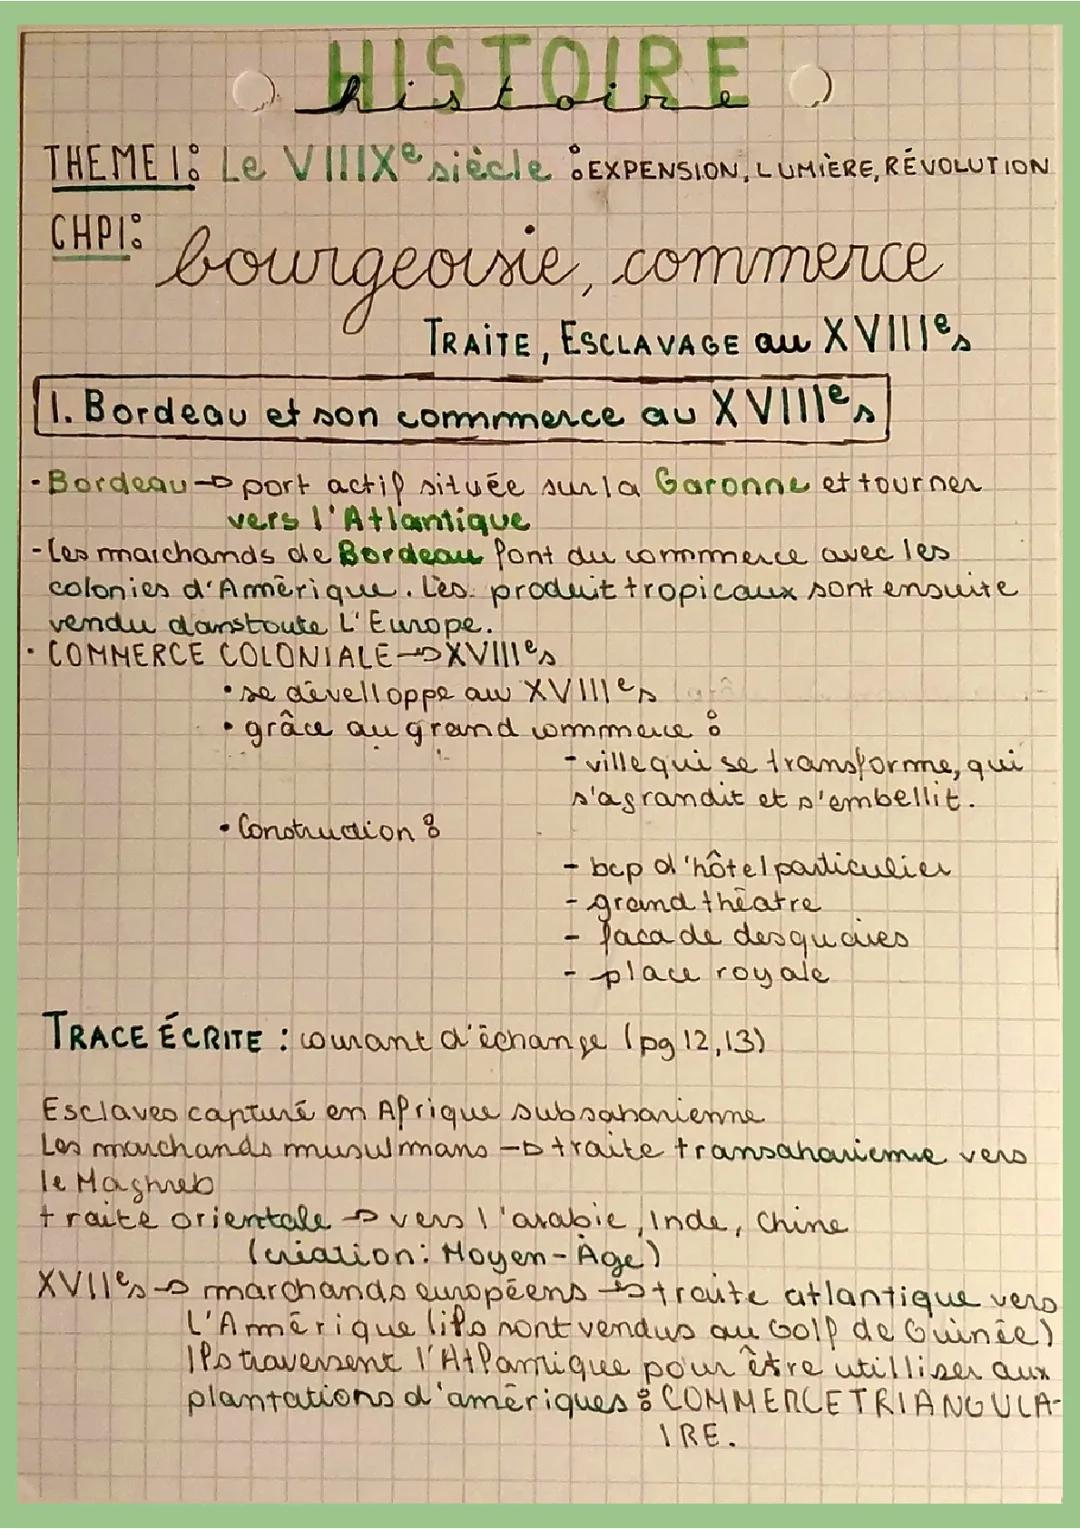 HISTOIRE
histoire
THEME 1: Le VIIIXe siècle : EXPENSION, LUMIÈRE, RÉVOLUTION
CHP1:
bourgeoisie, commerce
TRAITE, ESCLAVAGE au XVIIIe s
1. Bordeau et son commmerce au XVIIIe s
• Bordeau → port actif située sur la Garonne et tourner
vers l'Atlantique
- Les marchands de Bordeau font du commmerce avec les
colonies d'Amérique. Les produit tropicaux sont ensuite
vendu dans toute L'Europe.
• COMMERCE COLONIALE → XVIIIe s
• se dévelloppe au XVIIIe s
• grâce au grand commmerce :
- ville qui se transforme, qui
s'agrandit et s'embellit.
• Construction :
- bcp d'hôtel particulier
- grand théatre
- facade des quaies
- place royale
TRACE ÉCRITE : courant d'échange (pg 12,13)
Esclaves capturé en Afrique subsaharienne
Les marchands musulmans → traite transaharienne vers
le Maghreb
traite orientale → vers l'arabie, Inde, Chine
(création: Moyen-Âge)
XVIIe s → marchands européens → traite atlantique vers
L'Amérique (ils sont vendus au Golf de Guinée)
Ils traversent l'Atlantique pour être utilliser aux
plantations d'amériques : COMMERCE TRIANGULA-
IRE.